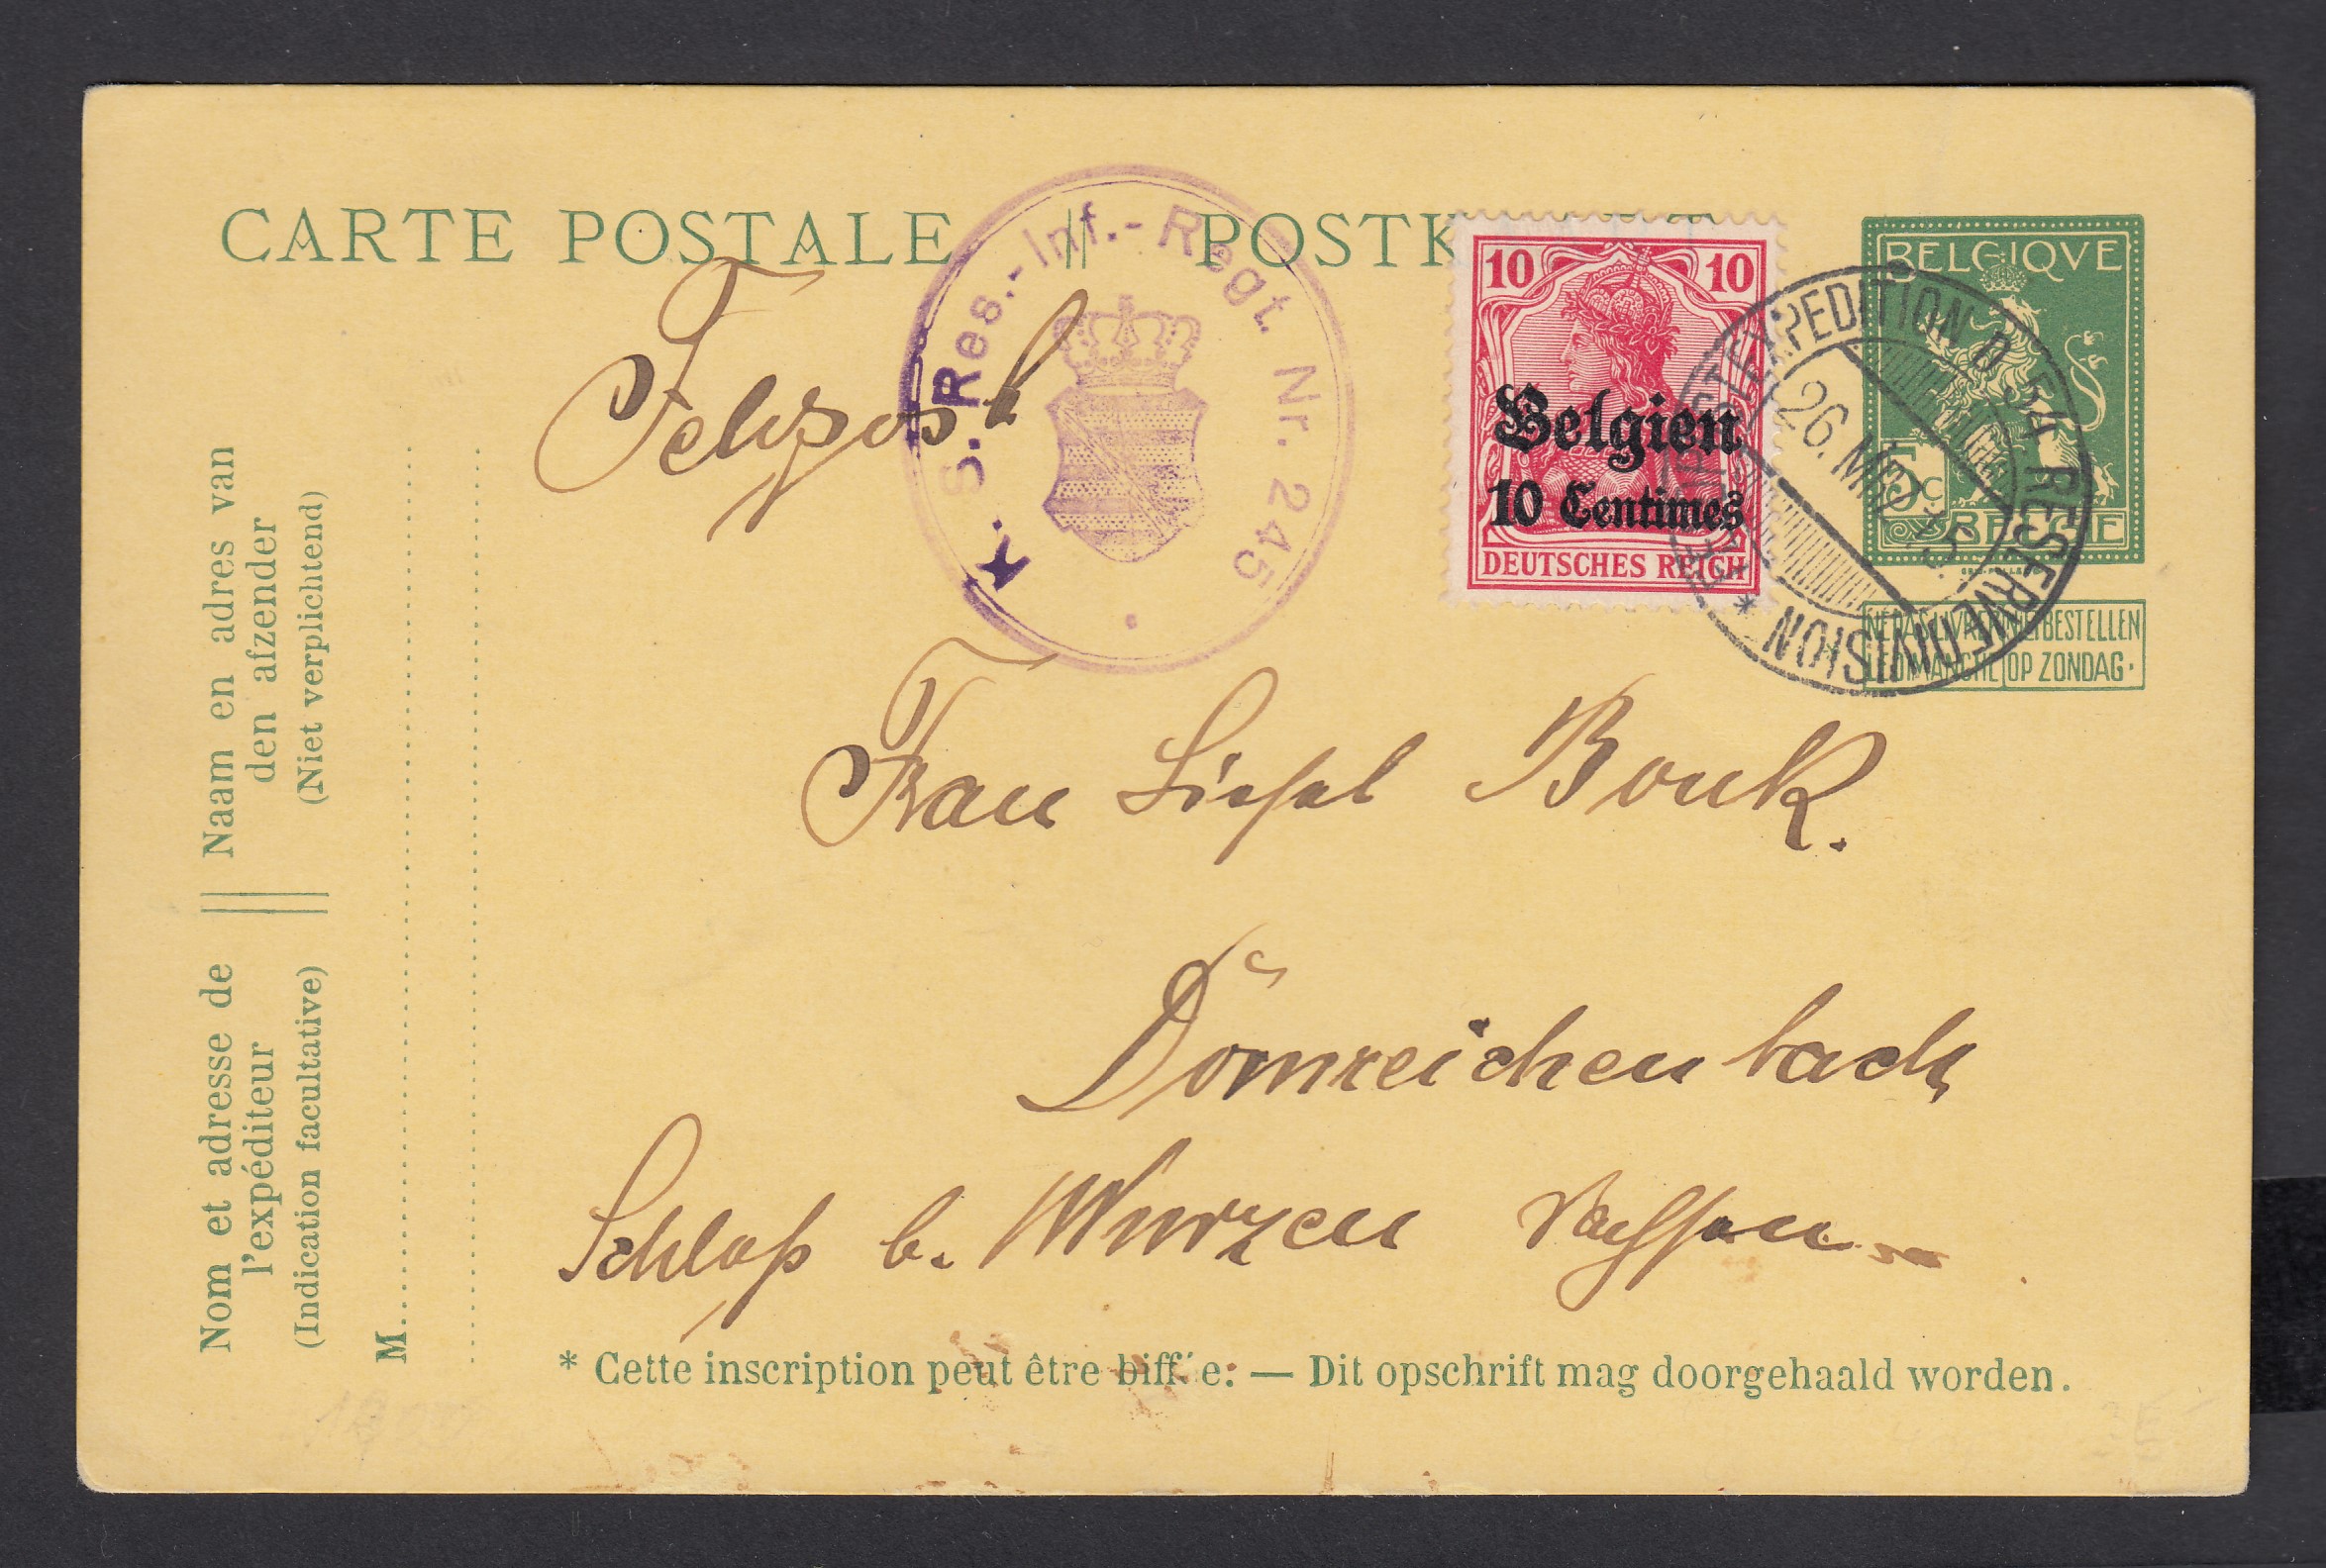 CARTE POSTALE || POSTK
Feldpost
K. S. Res.-Inf.-Regt. Nr. 245
10 10
Belgien
10 Centimes
DEUTSCHES REICH
BELGIQVE
5c
BELGIE
EXPEDITION D. 54 RESERVEDIVISION *
26. MRZ 15.
NE PAS LIVRER NIET BESTELLEN
LE DIMANCHE OP ZONDAG.
Frau Liesel Bonk.
Dornreichenbach
Schloß b. Wurzen Sachsen
* Cette inscription peut être biffée: — Dit opschrift mag doorgehaald worden.
Naam en adres van
den afzender
(Niet verplichtend)
Nom et adresse de
l'expéditeur
(Indication facultative)
M